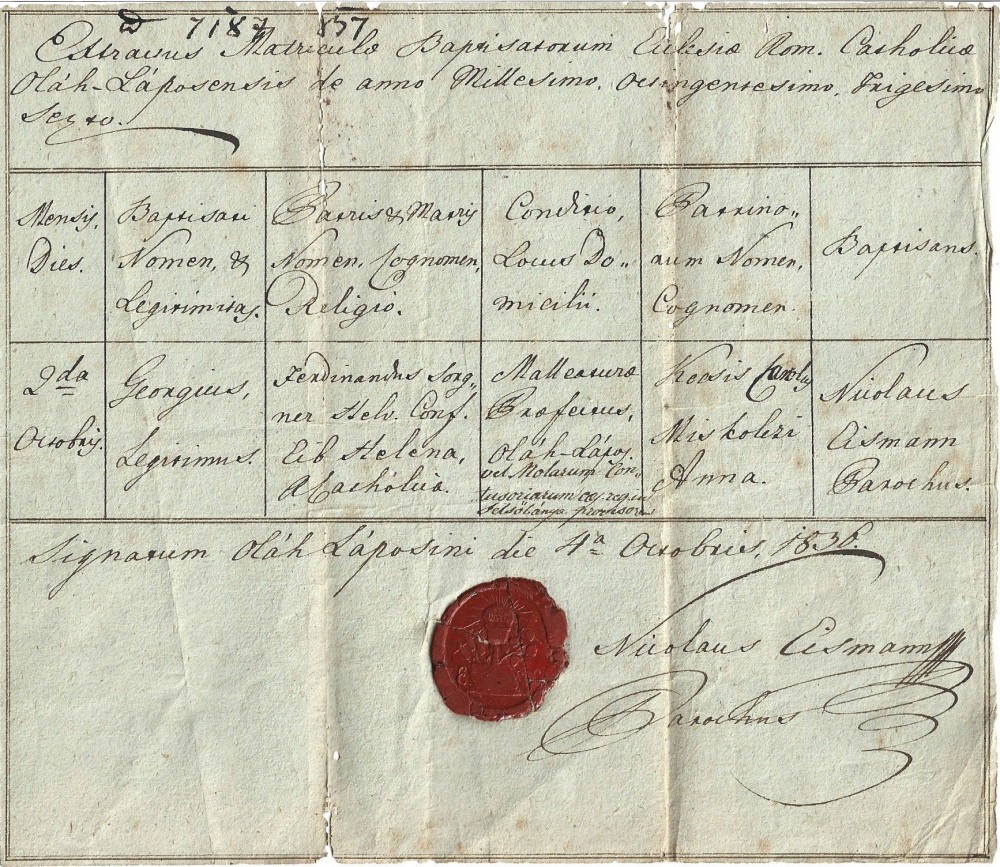 7187 837
Extractus Matriculæ Baptisatorum Eclesiæ Rom. Catholicæ
Oláh-Láposensis de anno Millesimo, Octingentesimo, Trigesimo
Sexto.
Mensis,
Dies.
Baptisati
Nomen, &
Legitimitas.
Patris & Matris
Nomen, Cognomen,
Religio.
Conditio,
Locus Do„
micilii.
Patrino„
rum Nomen,
Cognomen.
Baptisans.
2da
Octobris.
Georgius,
Legitimus.
Ferdinandus Sorg„
ner Helv. Conf.
Eib Helena,
ACathólica.
Malleaturæ
Præfectus,
Oláh-Lápos.
vel Molarum Con„
tusoriarum
Felsőbánya provisor
Kocsis Carolus
Miskolczi
Anna.
Nicolaus
Eismann
Parochus.
Signatum Oláh Láposini die 4a Octobris, 1836.
Nicolaus Eismann
Parochus